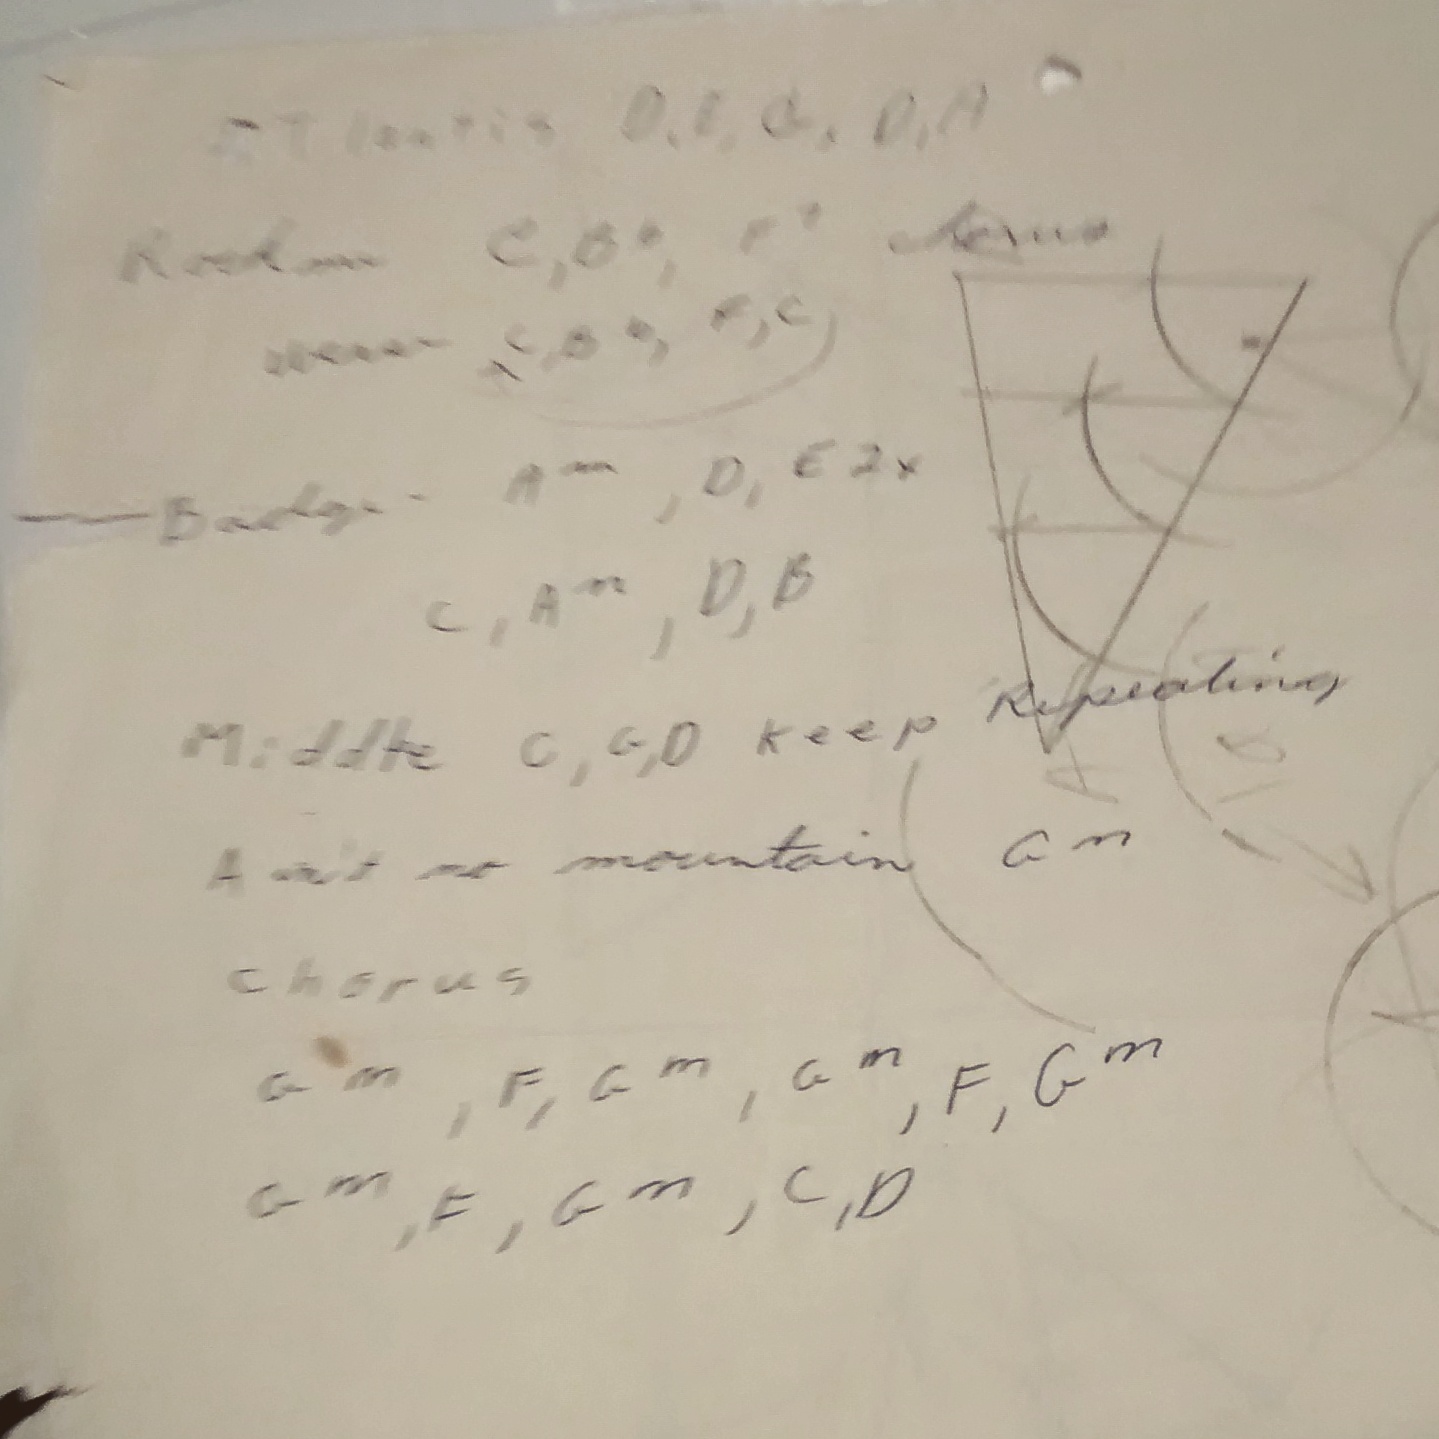 D, E, G, D, A
C, Bb, F
C, Bb, F, C
Badge - Am, D, E 2x
C, Am, D, B
Middle C, G, D keep Repeating
Ain't no mountain Gm
chorus
Gm, F, Gm, Gm, F, Gm
Gm, F, Gm, C, D